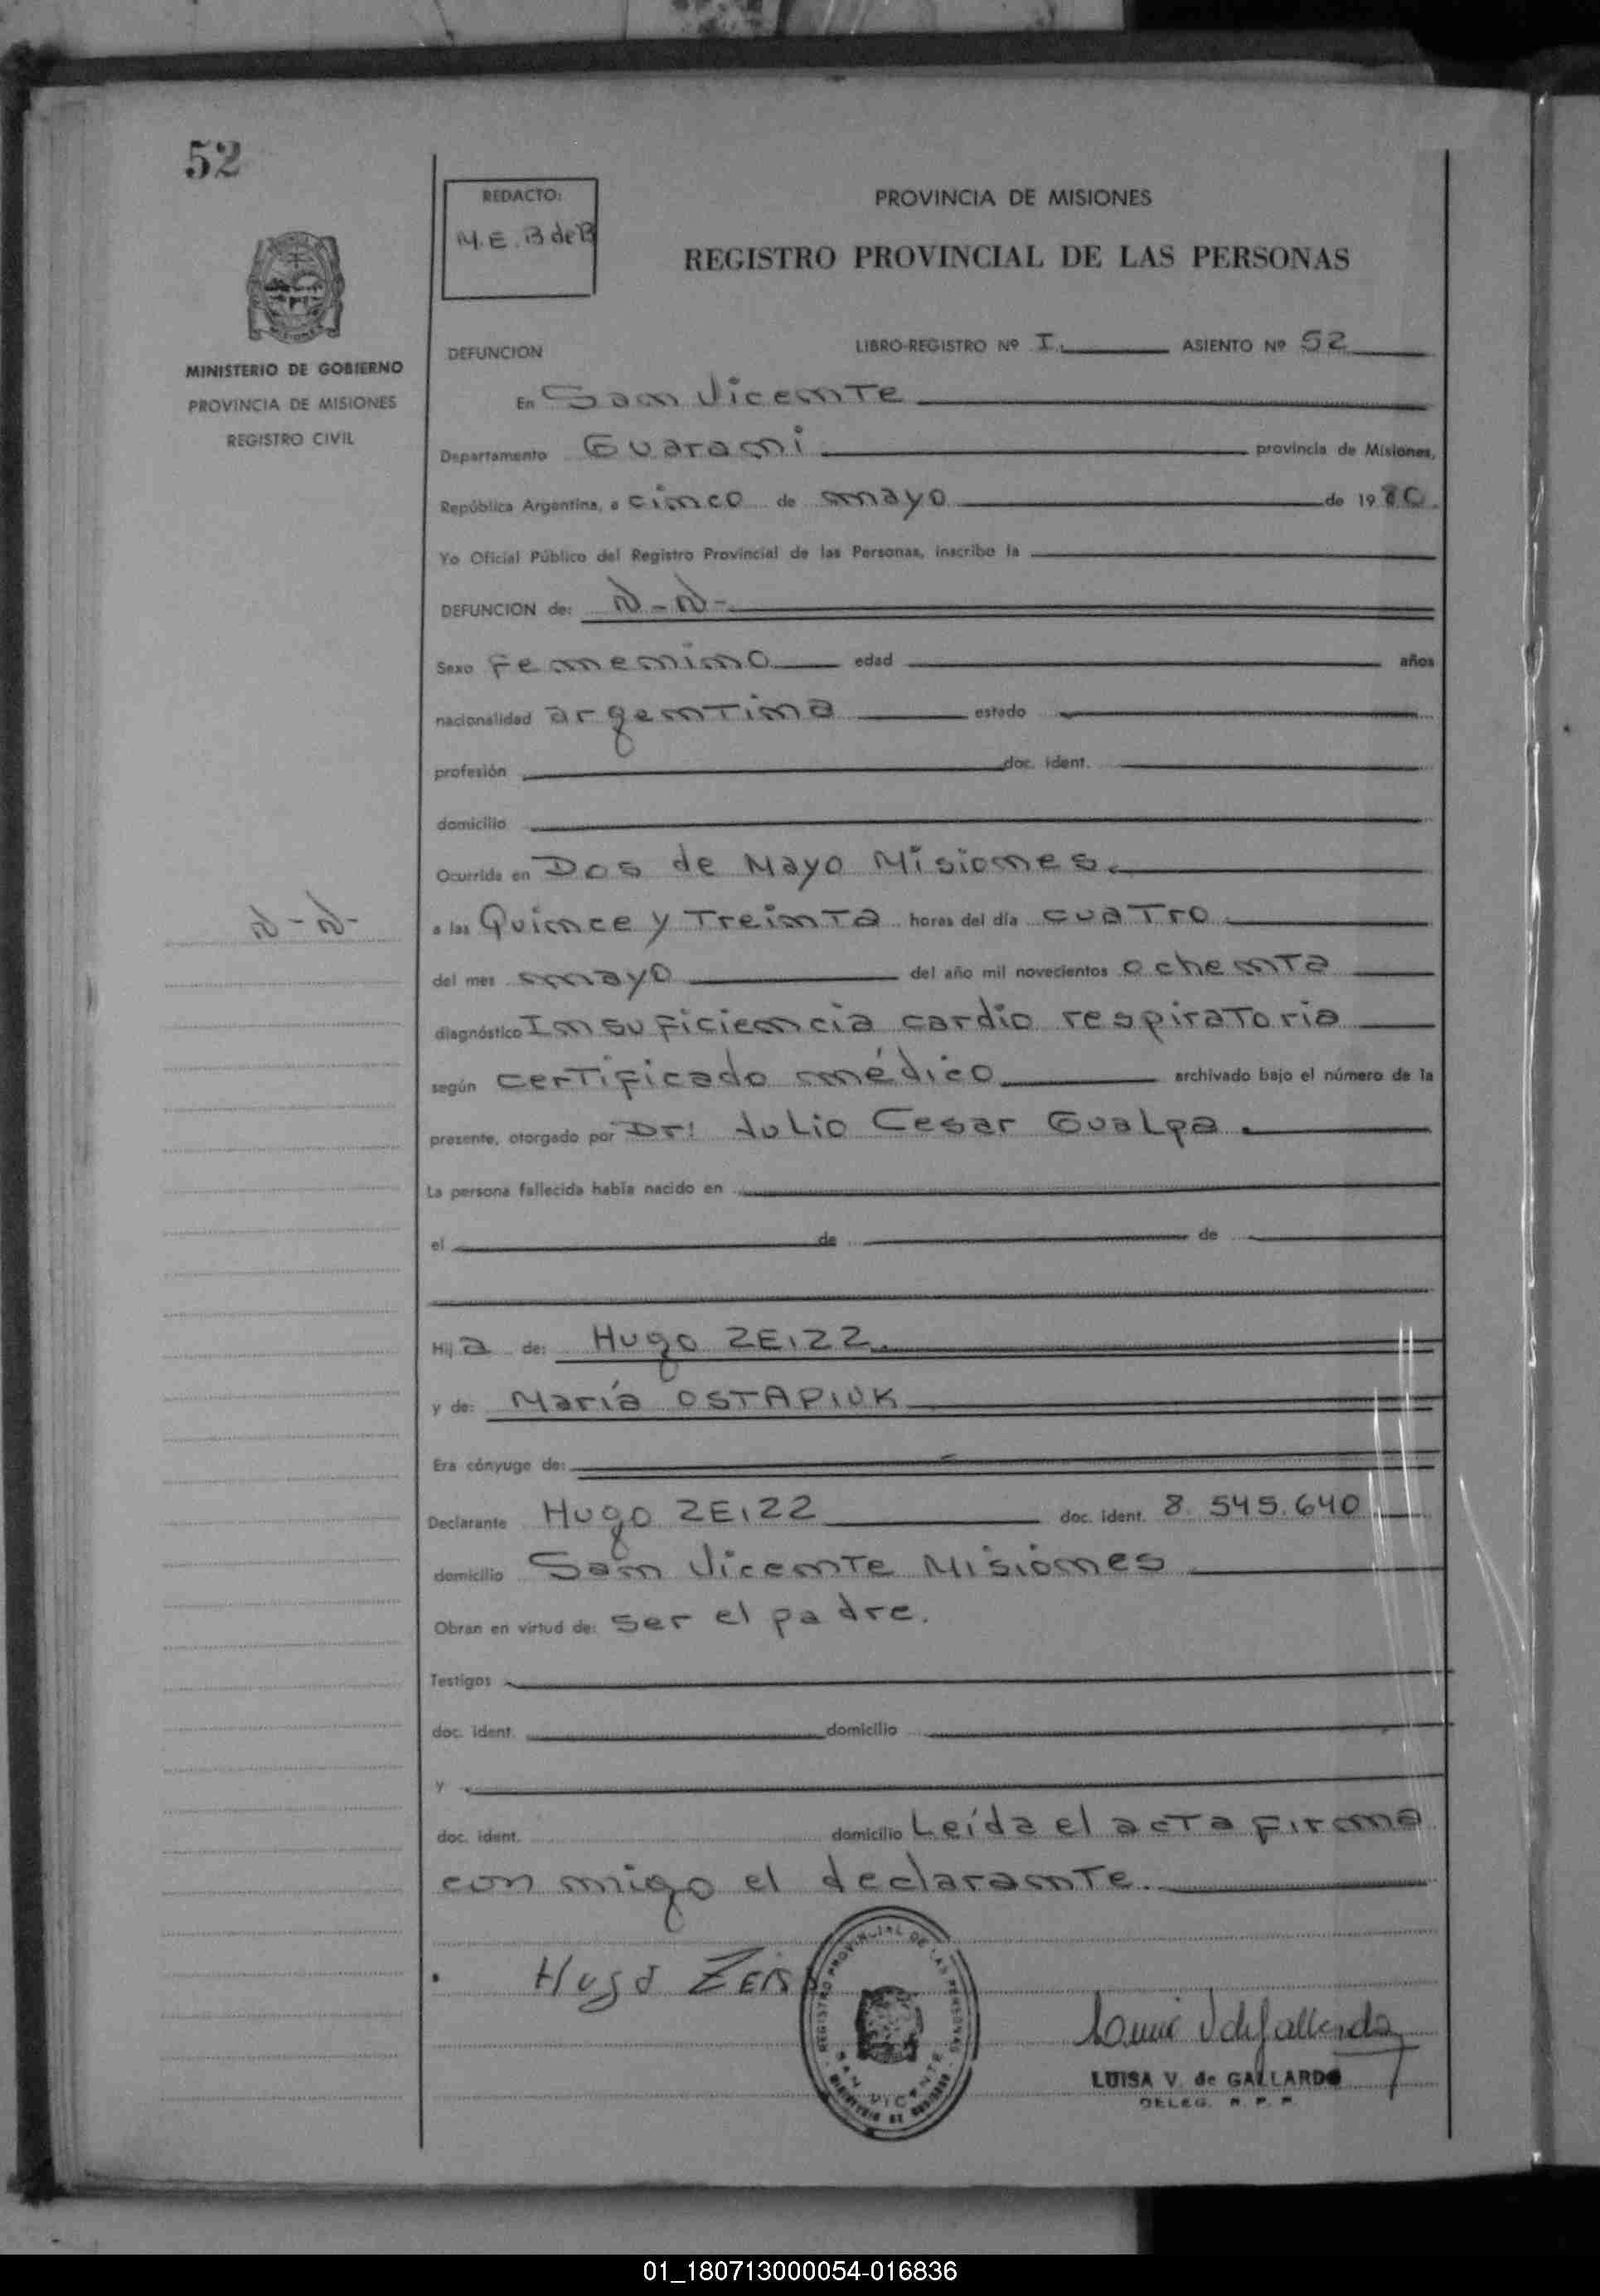 52
REDACTO:
M.E.B de B
PROVINCIA DE MISIONES
REGISTRO PROVINCIAL DE LAS PERSONAS
MINISTERIO DE GOBIERNO
PROVINCIA DE MISIONES
REGISTRO CIVIL
DEFUNCION LIBRO-REGISTRO Nº I. ASIENTO Nº 52
En San Vicente
Departamento Guarani provincia de Misiones,
República Argentina, a cinco de mayo de 1980.
Yo Oficial Público del Registro Provincial de las Personas, inscribo la
DEFUNCION de: N-N-
Sexo Femenino edad años
nacionalidad argentina estado
profesión doc. ident.
domicilio
Ocurrida en Dos de Mayo Misiones.
N-N-
a las Quince y Treinta horas del día cuatro
del mes mayo del año mil novecientos ochenta
diagnóstico Insuficiencia cardio respiratoria
según certificado médico archivado bajo el número de la
presente, otorgado por Dr: Julio Cesar Gualpa.
La persona fallecida había nacido en
el de de
Hija de: Hugo ZEIZZ.
y de: María OSTAPIUK
Era cónyuge de:
Declarante Hugo ZEIZZ doc. ident. 8.545.640
domicilio San Vicente Misiones
Obran en virtud de: ser el padre.
Testigos
doc. ident. domicilio
y
doc. ident. domicilio Leída el acta firma
con migo el declarante.
Hugo
REGISTRO PROVINCIAL DE LAS PERSONAS
SAN VICENTE
LUISA V. de GALLARDO
DELEG. R. P. P.
01_180713000054-016836